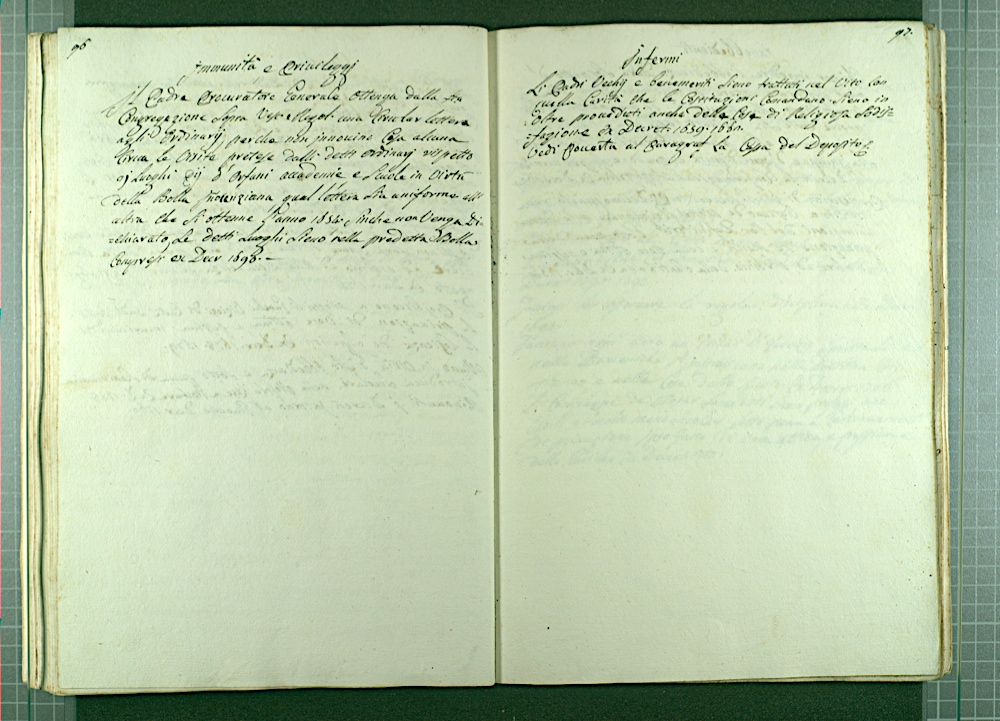 96
Immunità e Priuileggi
Il Padre Procuratore Generale ottenga dalla Sa
Congregazione sopra Vesc. e Regol. una Circular lettera
agli Ordinarij perche non innouino Cosa alcuna
Circa le Visite pretese dalli detti Ordinarij rispetto
a Luoghi Pij d'Orfani accademie e Scuole in Virtù
della Bolla Innocenziana qual lettera sia uniforme all'
altra che si ottenne l'anno finche non Venga Di=
=chiarato, Se detti Luoghi sieno nella predetta Bolla
Compresi ex Decr 1698.
97.
Infermi
Li Padri Vechij e benemeriti sieno trattati nel Vito con
quella Carità che le Costituzioni Comandano. Sieno in
oltre proueduti anche delle Cose di Religiosa Sodis=
=fazione ex Decreti 1659. 1660.
Vedi Pouertà al Paragraf. La Cassa del Deposito